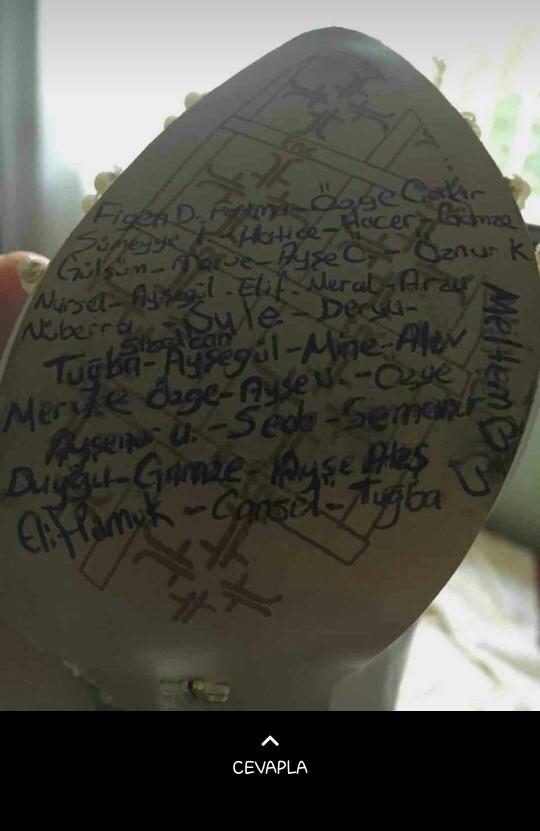 Figen D. Fatma - Özge Çakır
Sümeyye - Hatice - Hacer - Gamze
Gülsün - Merve - Ayşe C. - Öznur K
Nursel - Ayşegül - Elif - Meral - Arzu
Nüberra - Şule - Derya -
Sibelcan
Tuğba - Ayşegül - Mine - Alev
Merve Özge - Ayşe - Özge
Ayşenur U. - Seda - Semanur
Duygu - Gamze - Ayşe Ateş
Elif Pamuk - Cansel - Tuğba
Meltem
CEVAPLA